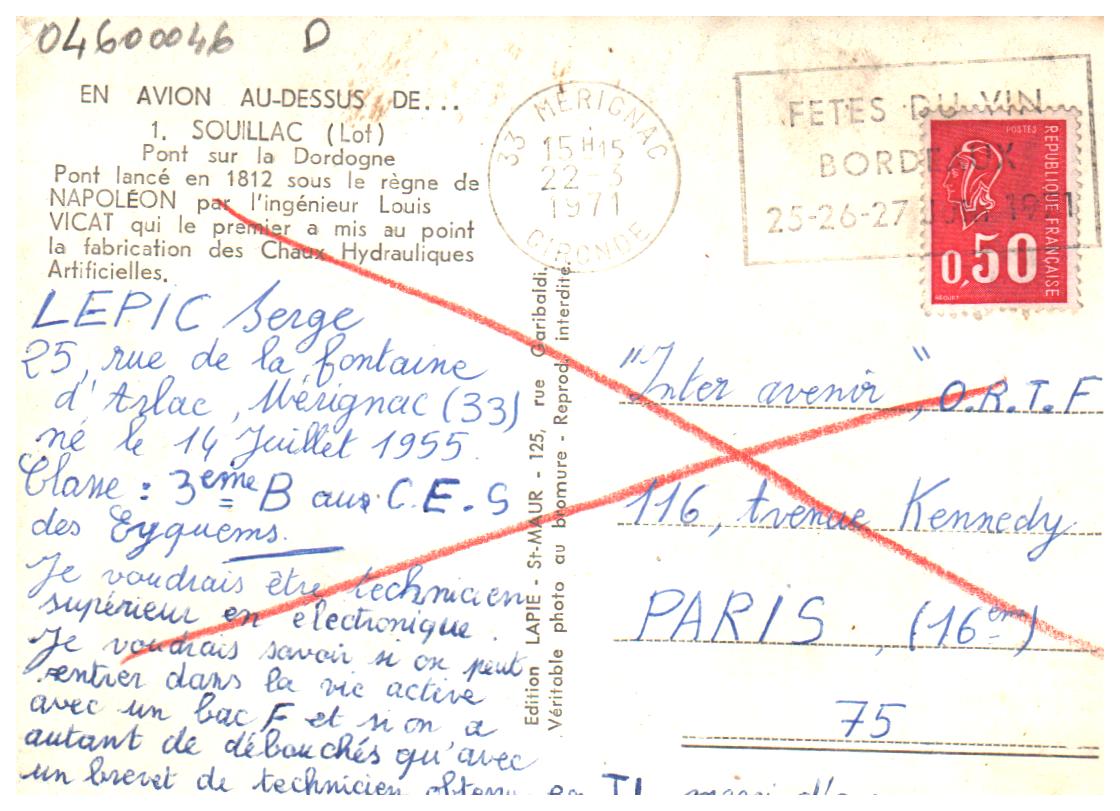 04600046 D
EN AVION AU-DESSUS DE...
1. SOUILLAC (Lot)
Pont sur la Dordogne
Pont lancé en 1812 sous le règne de
NAPOLÉON par l'ingénieur Louis
VICAT qui le premier a mis au point
la fabrication des Chaux Hydrauliques
Artificielles.
33 MÉRIGNAC
15H15
22-3
1971
GIRONDE
FETES DU VIN
BORDEAUX
25-26-27 JUIN 1971
POSTES
REPUBLIQUE FRANÇAISE
0,50
LEPIC Serge
25, rue de la fontaine
d'Arlac, Mérignac (33)
né le 14 Juillet 1955.
Classe : 3ème B aux C.E.S
des Eyquems.
Je voudrais être technicien
supérieur en électronique.
Je voudrais savoir si on peut
rentrer dans la vie active
avec un bac F et si on a
autant de débouchés qu'avec
un brevet de technicien obtenu en
Edition LAPIE - St-MAUR - 125, rue Garibaldi.
Véritable photo au bromure - Reprod. interdite
"Inter avenir", O.R.T.F
116, Avenue Kennedy
PARIS, (16ème)
75